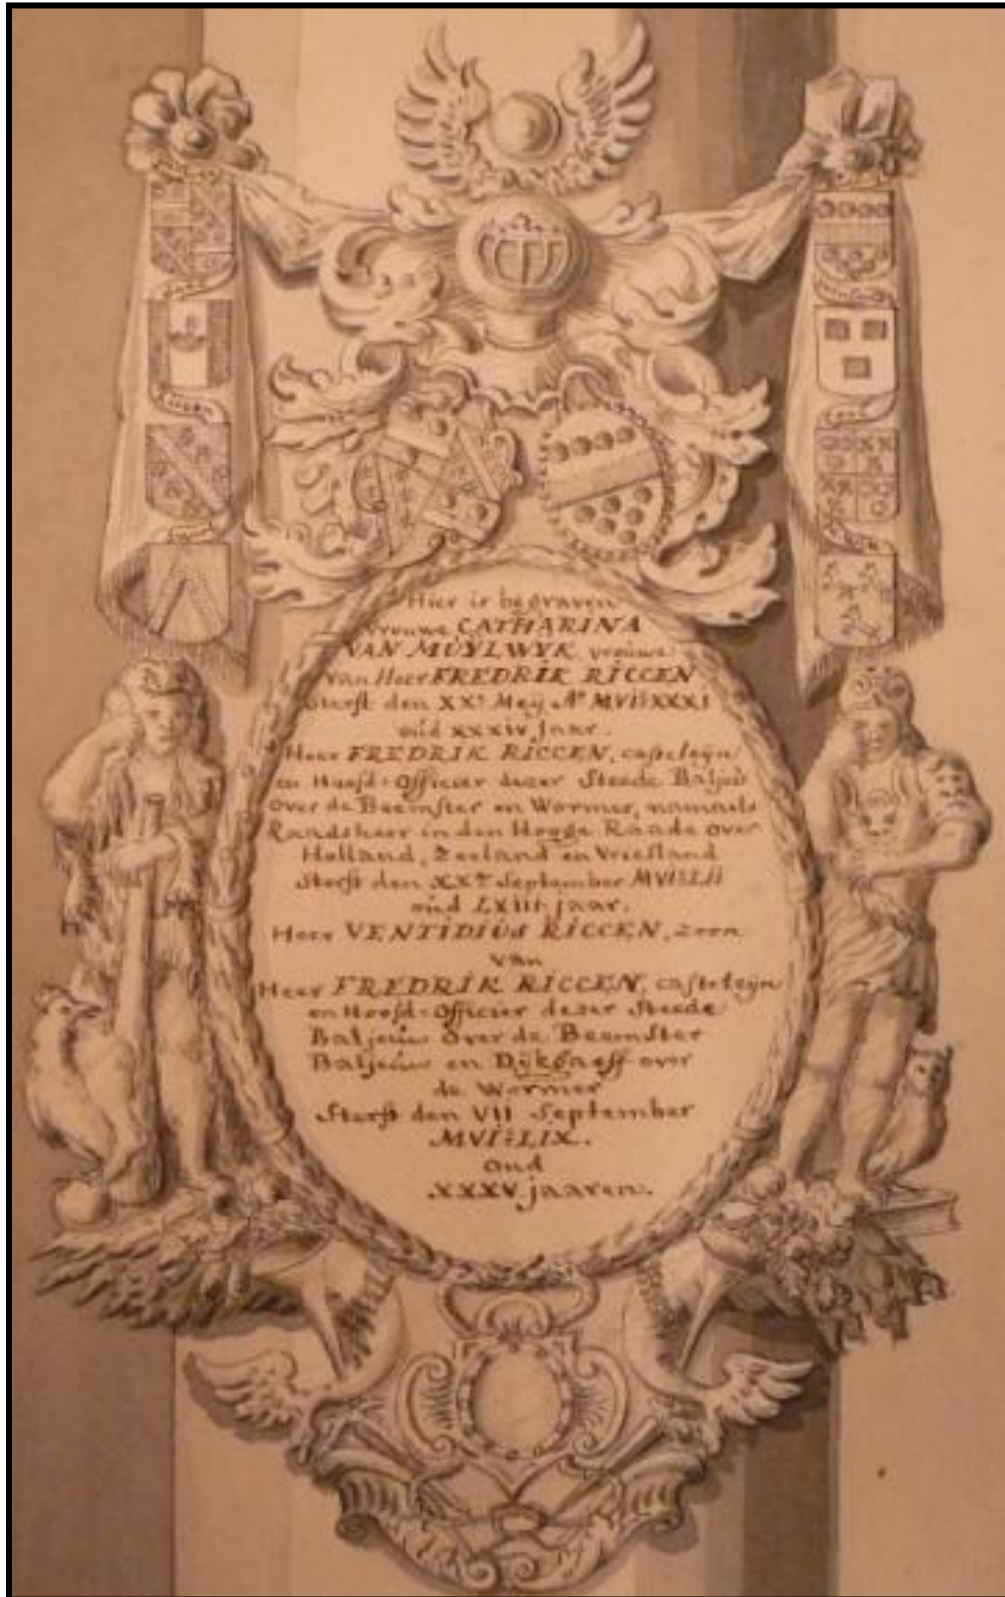 Hier is begraven
Vrouwe CATHARINA
VAN MUYLWYK vrouwe
van Heer FREDRIK RICCEN
Sterft den XXe Meij Ao MVIcXXXI
oud XXXIV Jaar.
Heer FREDRIK RICCEN, casteleijn
en Hoofd-Officier dezer Steede Baljeuw
over de Beemster en Wormer, namaels
Raadsheer in den Hooge Raade over
Holland, Zeeland en Vriesland
Sterft den XXe September MVIcLII
oud LXIII jaar.
Heer VENTIDIUS RICCEN, zoon
van
Heer FREDRIK RICCEN, casteleijn
en Hoofd-Officier dezer Steede
Baljeuw over de Beemster
Baljeuw en Dijkgraeff over
de Wormer
Sterft den VII September
MVIcLIX.
oud
XXXV jaaren.